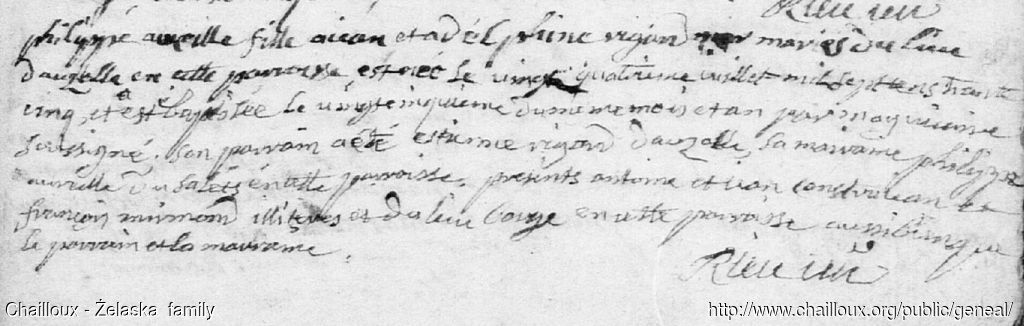 Rieu curé
philippe aureille fille a iean et a delphine rigord mariés du lieu
d'auzelle en cette paroisse est née le vingt quatrieme iuillet mil sept cens trante
cinq, et a esté baptisée le vingt cinquieme du meme mois et an par moy
soussigné, son parrain a été estienne rigord d'auzelle, sa marraine philippe
aureille en cette paroisse, presents antoine et iean et
françois mirmand illiteres et du lieu en cette paroisse aussi bien que
le parrain et la marraine.
Chailloux - Żelaska family
http://www.chailloux.org/public/geneal/